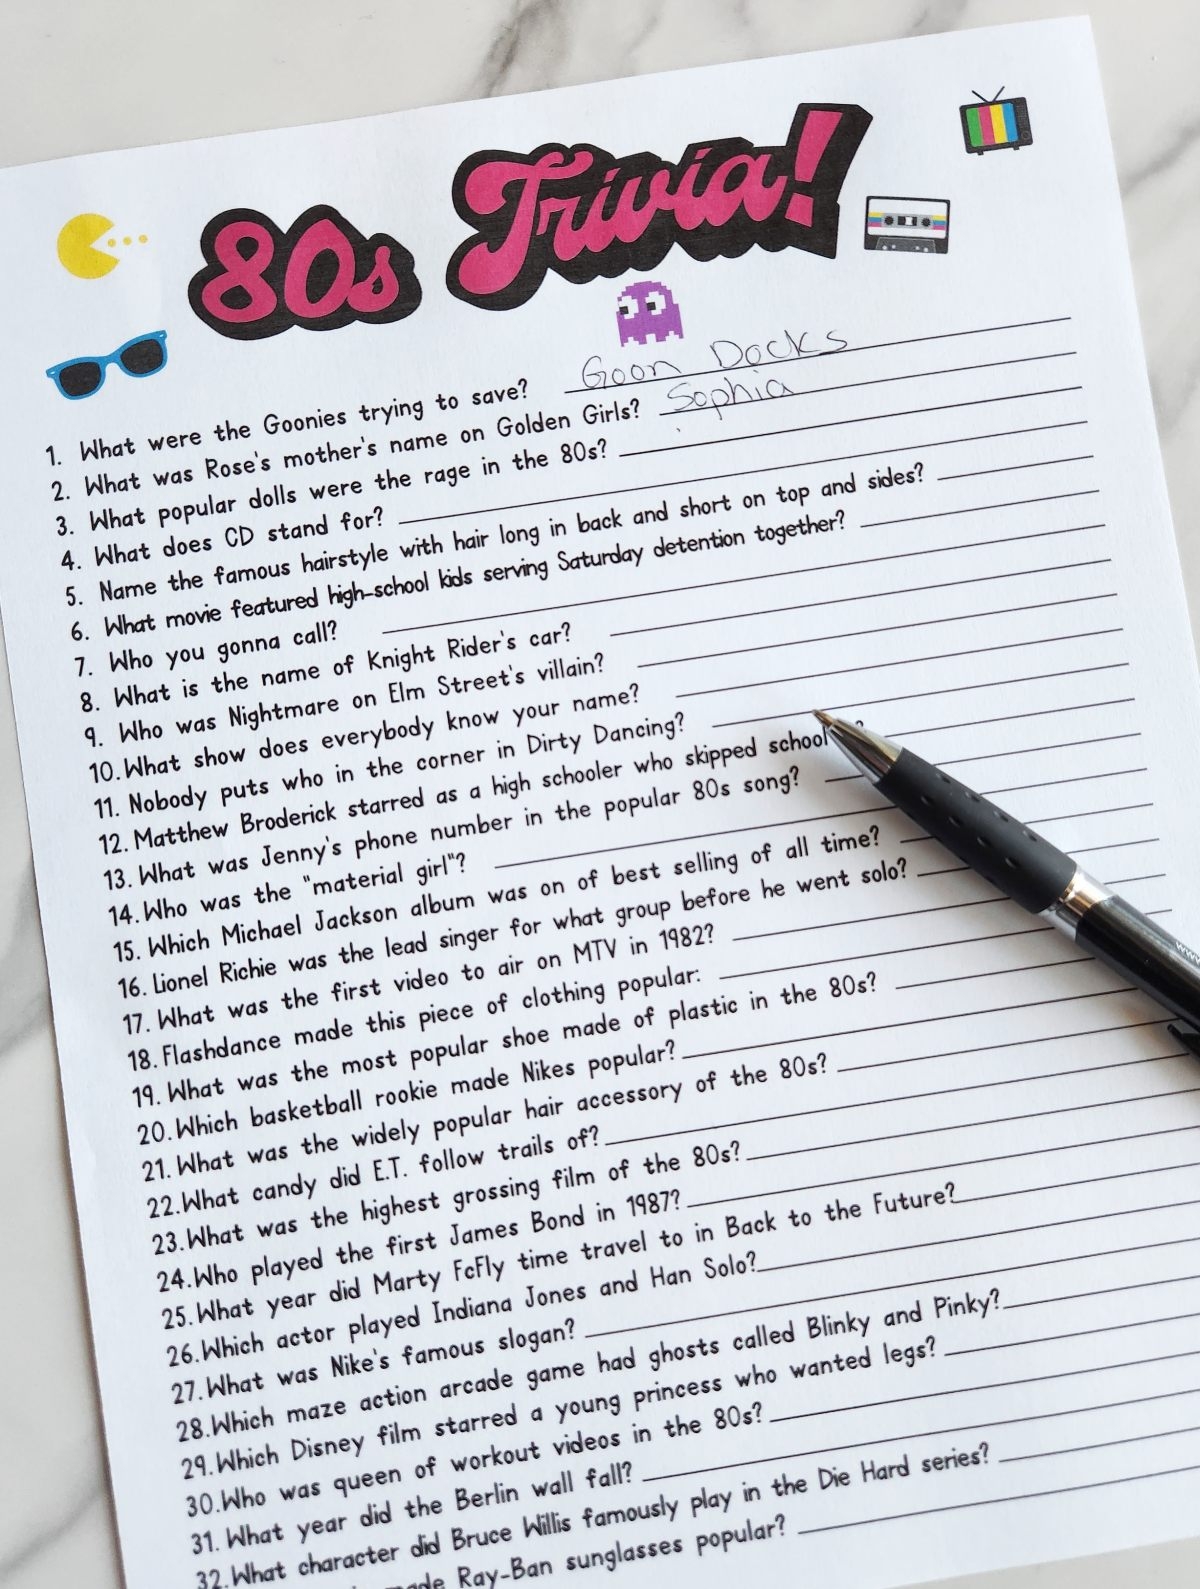 80s Trivia!
1. What were the Goonies trying to save? Goon Docks
2. What was Rose's mother's name on Golden Girls? Sophia
3. What popular dolls were the rage in the 80s?
4. What does CD stand for?
5. Name the famous hairstyle with hair long in back and short on top and sides?
6. What movie featured high-school kids serving Saturday detention together?
7. Who you gonna call?
8. What is the name of Knight Rider's car?
9. Who was Nightmare on Elm Street's villain?
10. What show does everybody know your name?
11. Nobody puts who in the corner in Dirty Dancing?
12. Matthew Broderick starred as a high schooler who skipped school?
13. What was Jenny's phone number in the popular 80s song?
14. Who was the "material girl"?
15. Which Michael Jackson album was on of best selling of all time?
16. Lionel Richie was the lead singer for what group before he went solo?
17. What was the first video to air on MTV in 1982?
18. Flashdance made this piece of clothing popular:
19. What was the most popular shoe made of plastic in the 80s?
20. Which basketball rookie made Nikes popular?
21. What was the widely popular hair accessory of the 80s?
22. What candy did E.T. follow trails of?
23. What was the highest grossing film of the 80s?
24. Who played the first James Bond in 1987?
25. What year did Marty FcFly time travel to in Back to the Future?
26. Which actor played Indiana Jones and Han Solo?
27. What was Nike's famous slogan?
28. Which maze action arcade game had ghosts called Blinky and Pinky?
29. Which Disney film starred a young princess who wanted legs?
30. Who was queen of workout videos in the 80s?
31. What year did the Berlin wall fall?
32. What character did Bruce Willis famously play in the Die Hard series?
made Ray-Ban sunglasses popular?